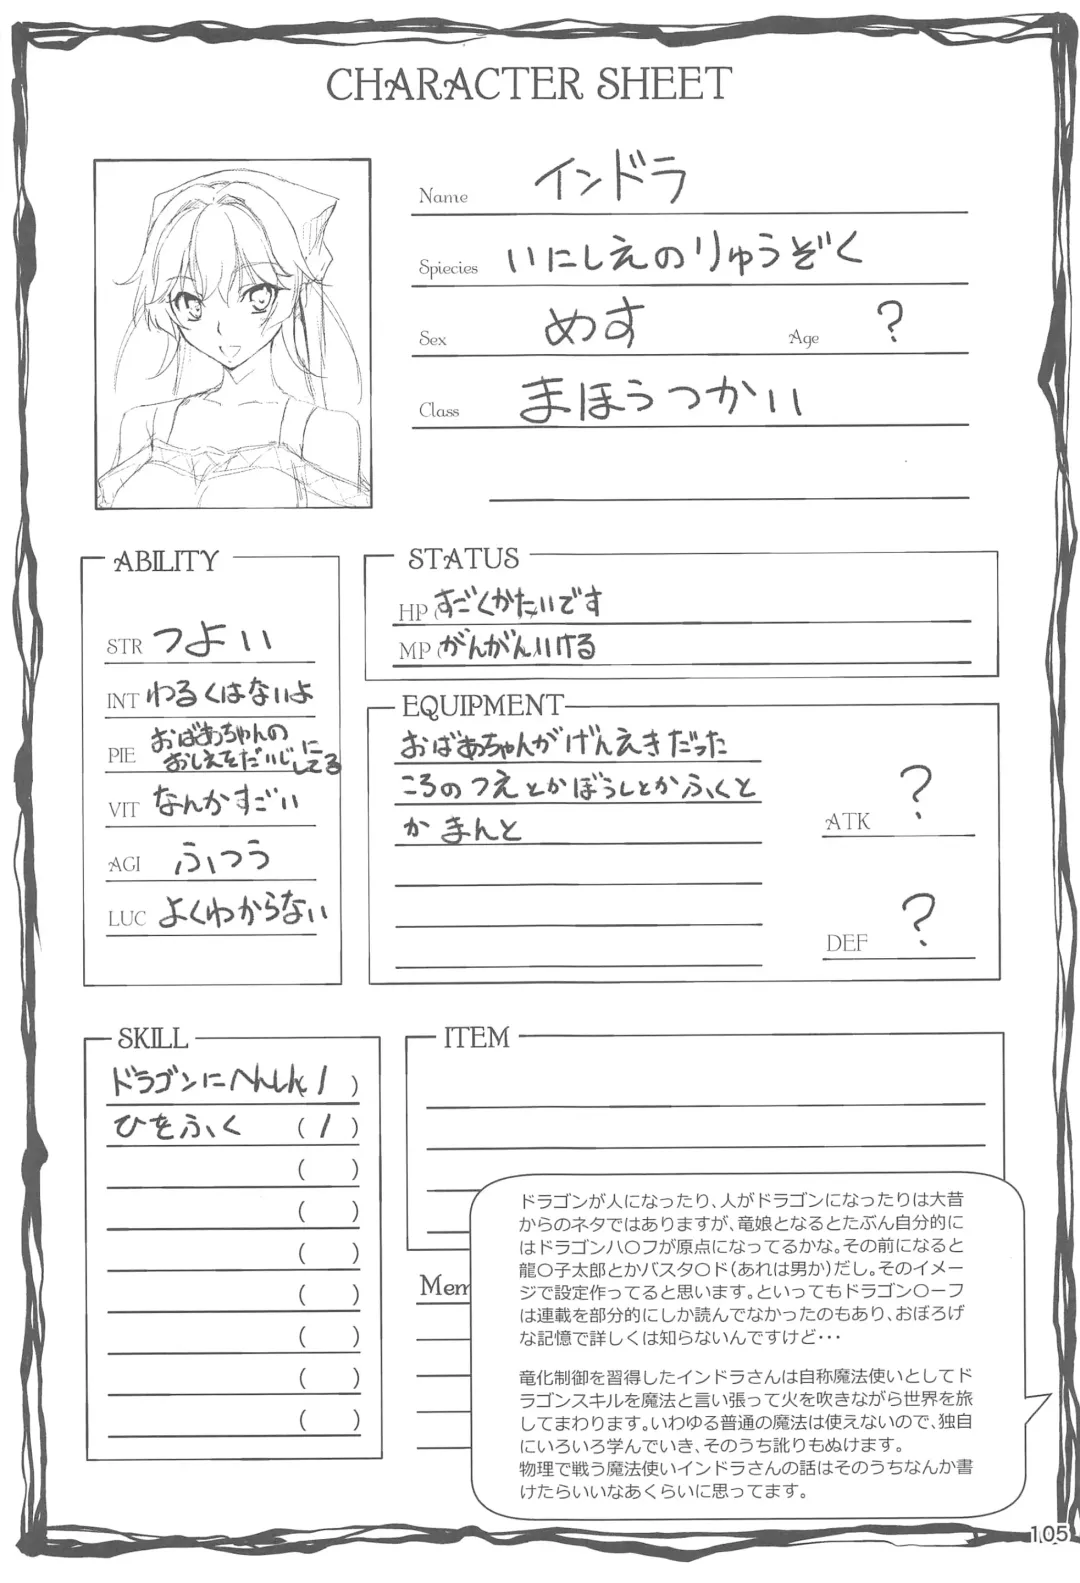 CHARACTER SHEET
Name インドラ
Spiecies いにしえのりゅうぞく
Sex めす Age ?
Class まほうつかい
ABILITY
STR つよい
INT わるくはないよ
PIE おばあちゃんの
おしえをだいじにしてる
VIT なんかすごい
AGI ふつう
LUC よくわからない
STATUS
HP( すごくかたいです
MP( がんがんいける
EQUIPMENT
おばあちゃんがげんえきだった
ころのつえとかぼうしとかふくと
かまんと
ATK ?
DEF ?
SKILL
ドラゴンにへんしん( 1 )
ひをふく ( 1 )
( )
( )
( )
( )
( )
( )
( )
ITEM
Mem
ドラゴンが人になったり、人がドラゴンになったりは大昔
からのネタではありますが、竜娘となるとたぶん自分的に
はドラゴンハ○フが原点になってるかな。その前になると
龍○子太郎とかバスタ○ド(あれは男か)だし。そのイメー
ジで設定作ってると思います。といってもドラゴン○ーフ
は連載を部分的にしか読んでなかったのもあり、おぼろげ
な記憶で詳しくは知らないんですけど・・・
竜化制御を習得したインドラさんは自称魔法使いとしてド
ラゴンスキルを魔法と言い張って火を吹きながら世界を旅
してまわります。いわゆる普通の魔法は使えないので、独自
にいろいろ学んでいき、そのうち訛りもぬけます。
物理で戦う魔法使いインドラさんの話はそのうちなんか書
けたらいいなあくらいに思ってます。
105